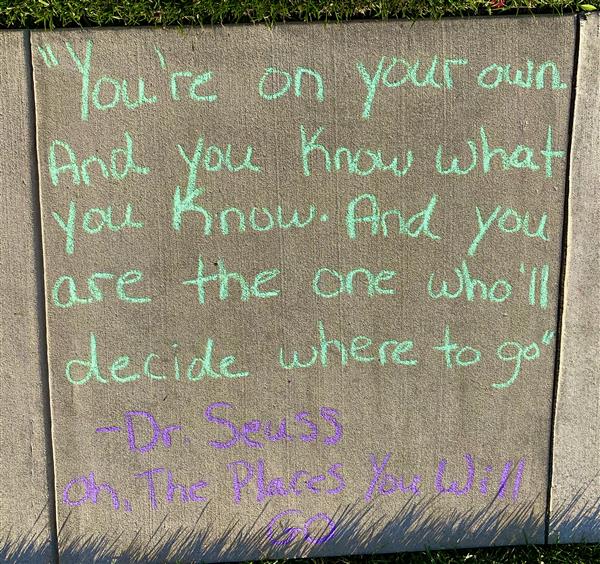 "You're on your own
And you know what
you know. And you
are the one who'll
decide where to go"
-Dr. Seuss
Oh, The Places You Will
GO